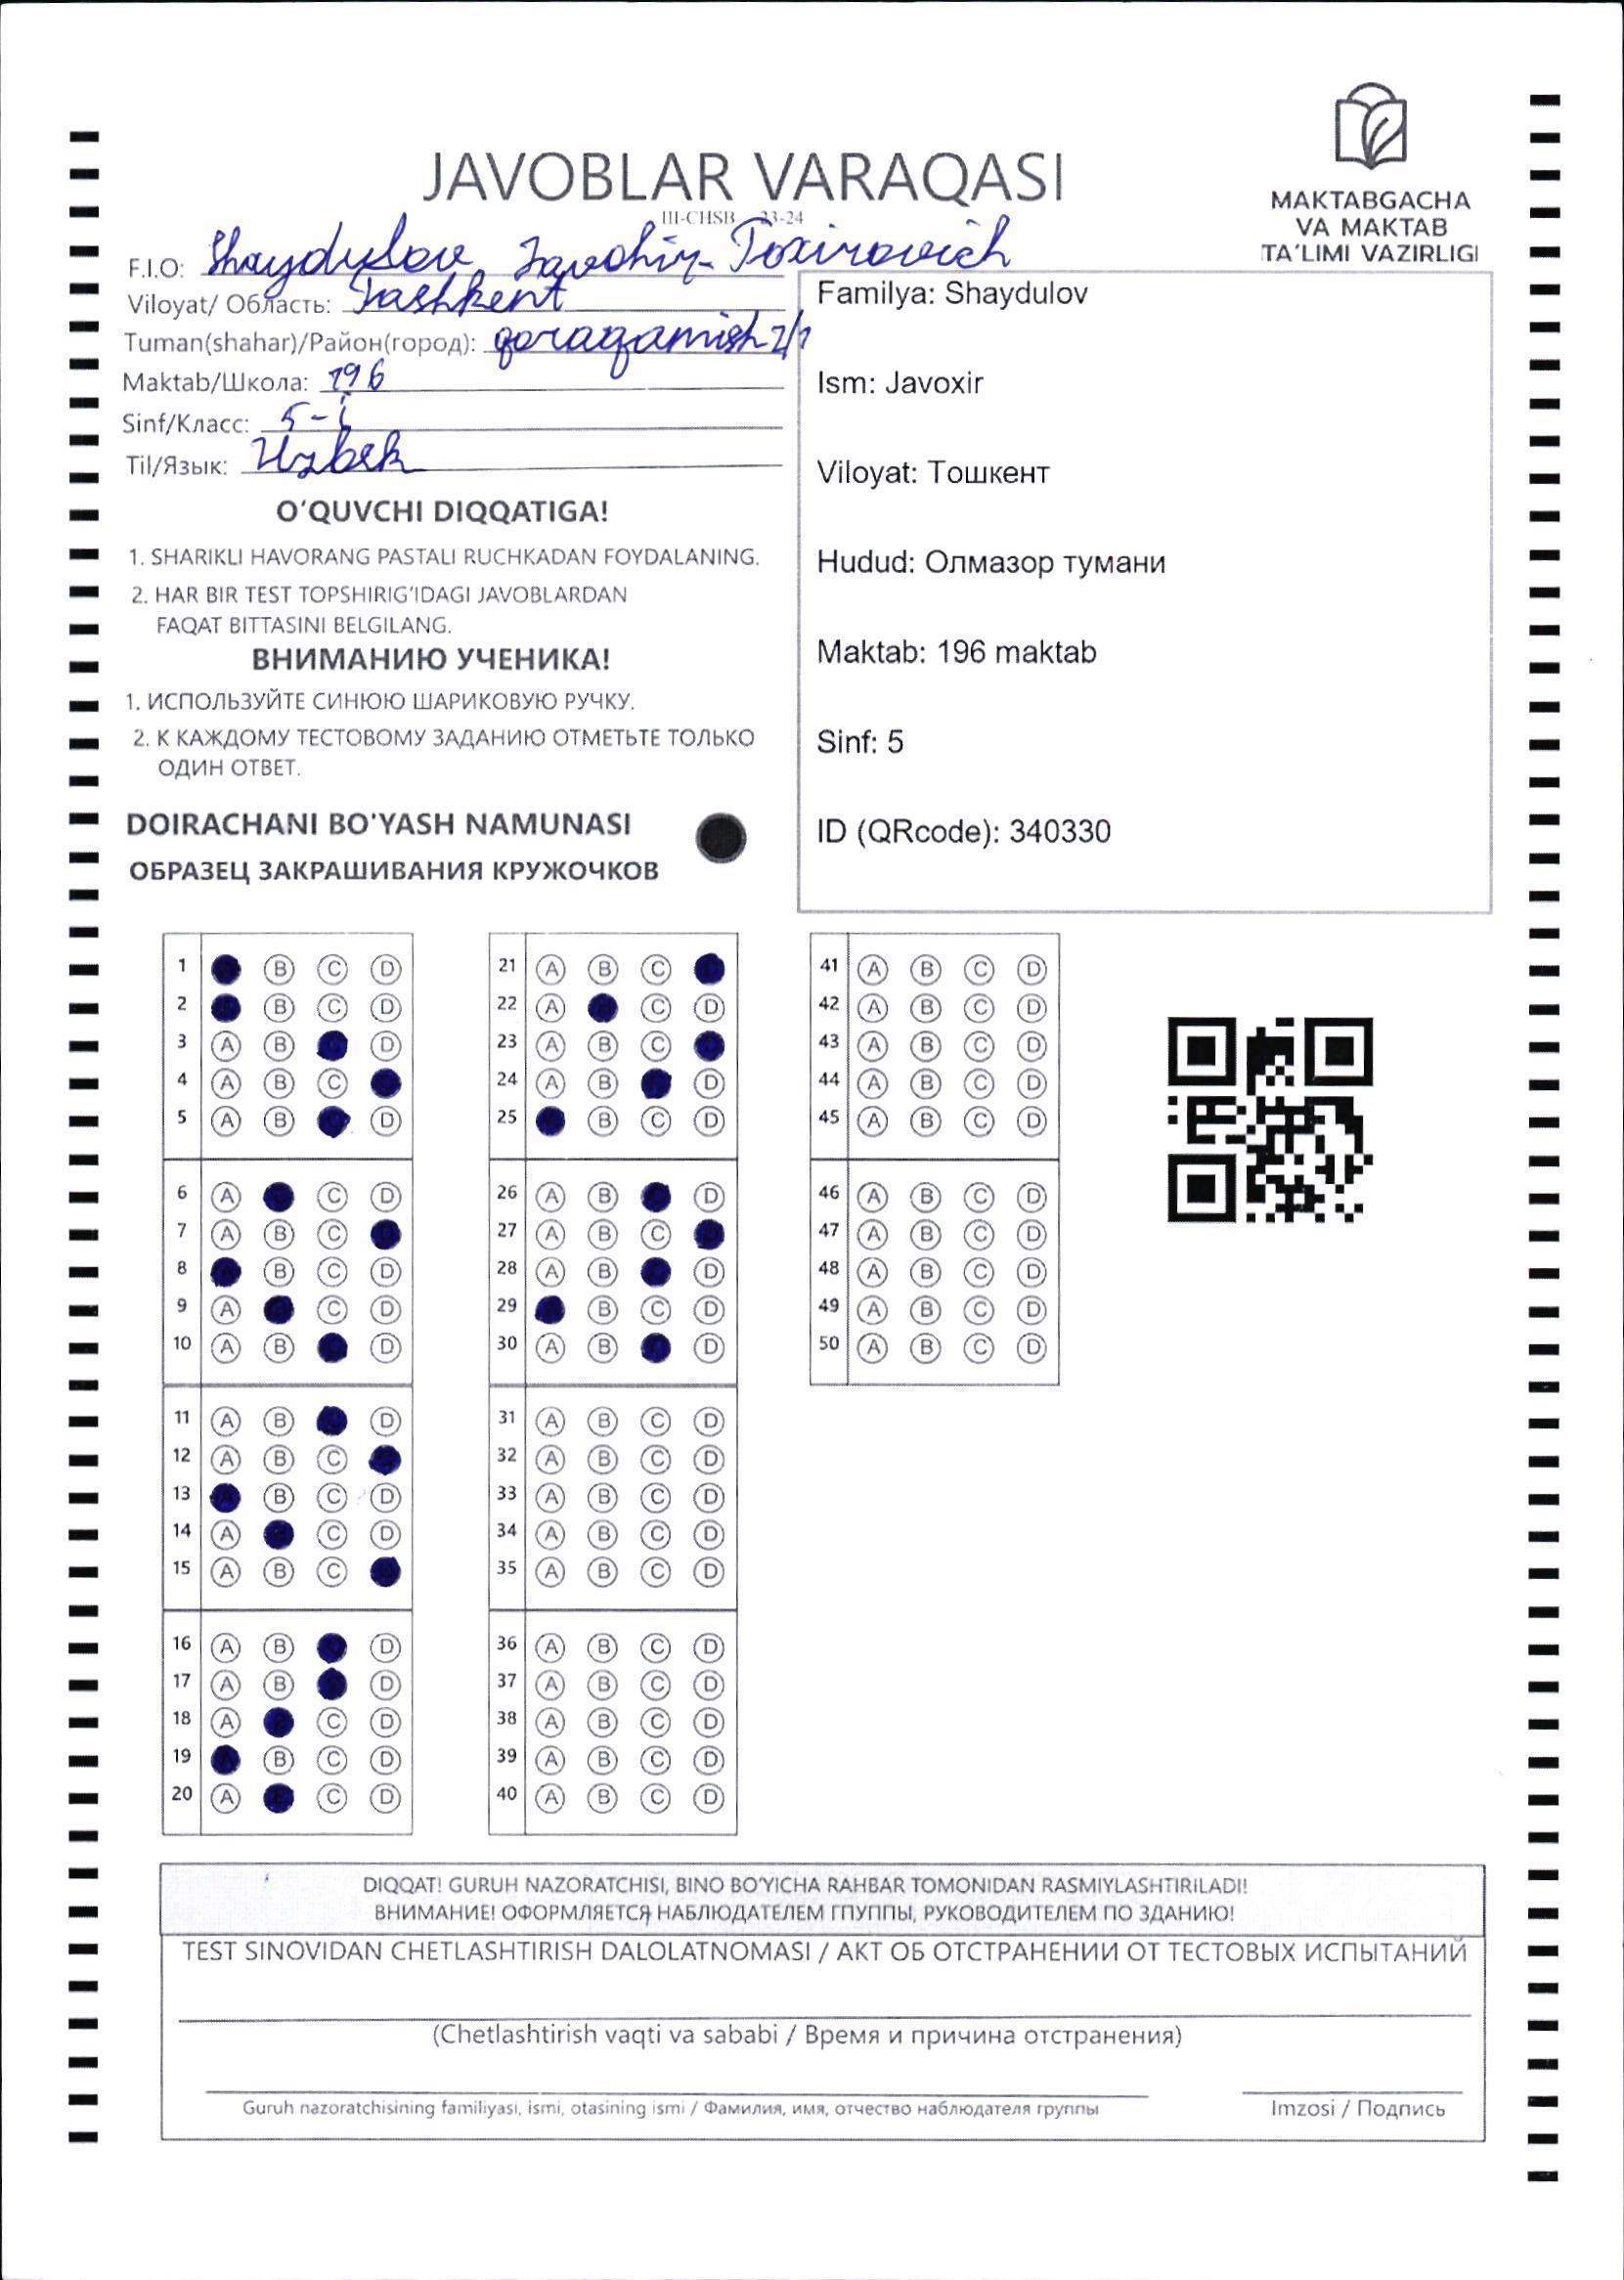 JAVOBLAR VARAQASI
III-CHSB 23-24
MAKTABGACHA
VA MAKTAB
TA'LIMI VAZIRLIGI
F.I.O: Shaydulov Javohir Toxirovich
Viloyat/ Область: Tashkent
Tuman(shahar)/Район(город): qoraqamish 2/1
Maktab/Школа: 196
Sinf/Класс: 5-i
Til/Язык: Uzbek
O'QUVCHI DIQQATIGA!
1. SHARIKLI HAVORANG PASTALI RUCHKADAN FOYDALANING.
2. HAR BIR TEST TOPSHIRIG'IDAGI JAVOBLARDAN
FAQAT BITTASINI BELGILANG.
ВНИМАНИЮ УЧЕНИКА!
1. ИСПОЛЬЗУЙТЕ СИНЮЮ ШАРИКОВУЮ РУЧКУ.
2. К КАЖДОМУ ТЕСТОВОМУ ЗАДАНИЮ ОТМЕТЬТЕ ТОЛЬКО
ОДИН ОТВЕТ.
DOIRACHANI BO'YASH NAMUNASI
ОБРАЗЕЦ ЗАКРАШИВАНИЯ КРУЖОЧКОВ
Familya: Shaydulov
Ism: Javoxir
Viloyat: Тошкент
Hudud: Олмазор тумани
Maktab: 196 maktab
Sinf: 5
ID (QRcode): 340330
1 B C D
2 B C D
3 A B D
4 A B C
5 A B D
6 A C D
7 A B C
8 B C D
9 A C D
10 A B D
11 A B D
12 A B C
13 B C D
14 A C D
15 A B C
16 A B D
17 A B D
18 A C D
19 B C D
20 A C D
21 A B C
22 A C D
23 A B C
24 A B D
25 B C D
26 A B D
27 A B C
28 A B D
29 B C D
30 A B D
31 A B C D
32 A B C D
33 A B C D
34 A B C D
35 A B C D
36 A B C D
37 A B C D
38 A B C D
39 A B C D
40 A B C D
41 A B C D
42 A B C D
43 A B C D
44 A B C D
45 A B C D
46 A B C D
47 A B C D
48 A B C D
49 A B C D
50 A B C D
DIQQAT! GURUH NAZORATCHISI, BINO BO'YICHA RAHBAR TOMONIDAN RASMIYLASHTIRILADI!
ВНИМАНИЕ! ОФОРМЛЯЕТСЯ НАБЛЮДАТЕЛЕМ ГПУППЫ, РУКОВОДИТЕЛЕМ ПО ЗДАНИЮ!
TEST SINOVIDAN CHETLASHTIRISH DALOLATNOMASI / АКТ ОБ ОТСТРАНЕНИИ ОТ ТЕСТОВЫХ ИСПЫТАНИЙ
(Chetlashtirish vaqti va sababi / Время и причина отстранения)
Guruh nazoratchisining familiyasi, ismi, otasining ismi / Фамилия, имя, отчество наблюдателя группы
Imzosi / Подпись